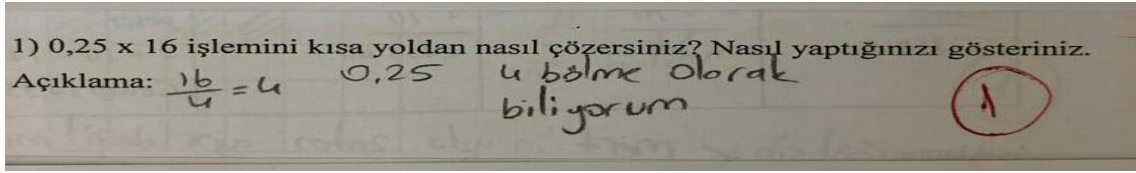 1) 0,25 x 16 işlemini kısa yoldan nasıl çözersiniz? Nasıl yaptığınızı gösteriniz.
Açıklama: 16/4 = 4 0,25 4 bölme olarak
biliyorum
1